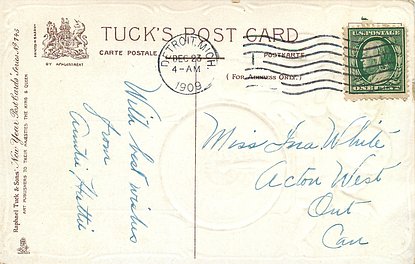 TUCK'S POST CARD
CARTE POSTALE
POSTKARTE.
(FOR ADDRESS ONLY.)
BY APPOINTMENT
DETROIT, MICH.
DEC 23
4-AM
1909
1
U.S. POSTAGE
ONE
Raphael Tuck & Sons' "New Year" Post Cards Series No
ART PUBLISHERS TO THEIR MAJESTIES THE KING & QUEEN
With best wishes
from
Auntie Hattie
Miss Ina White
Acton West
Ont
Can